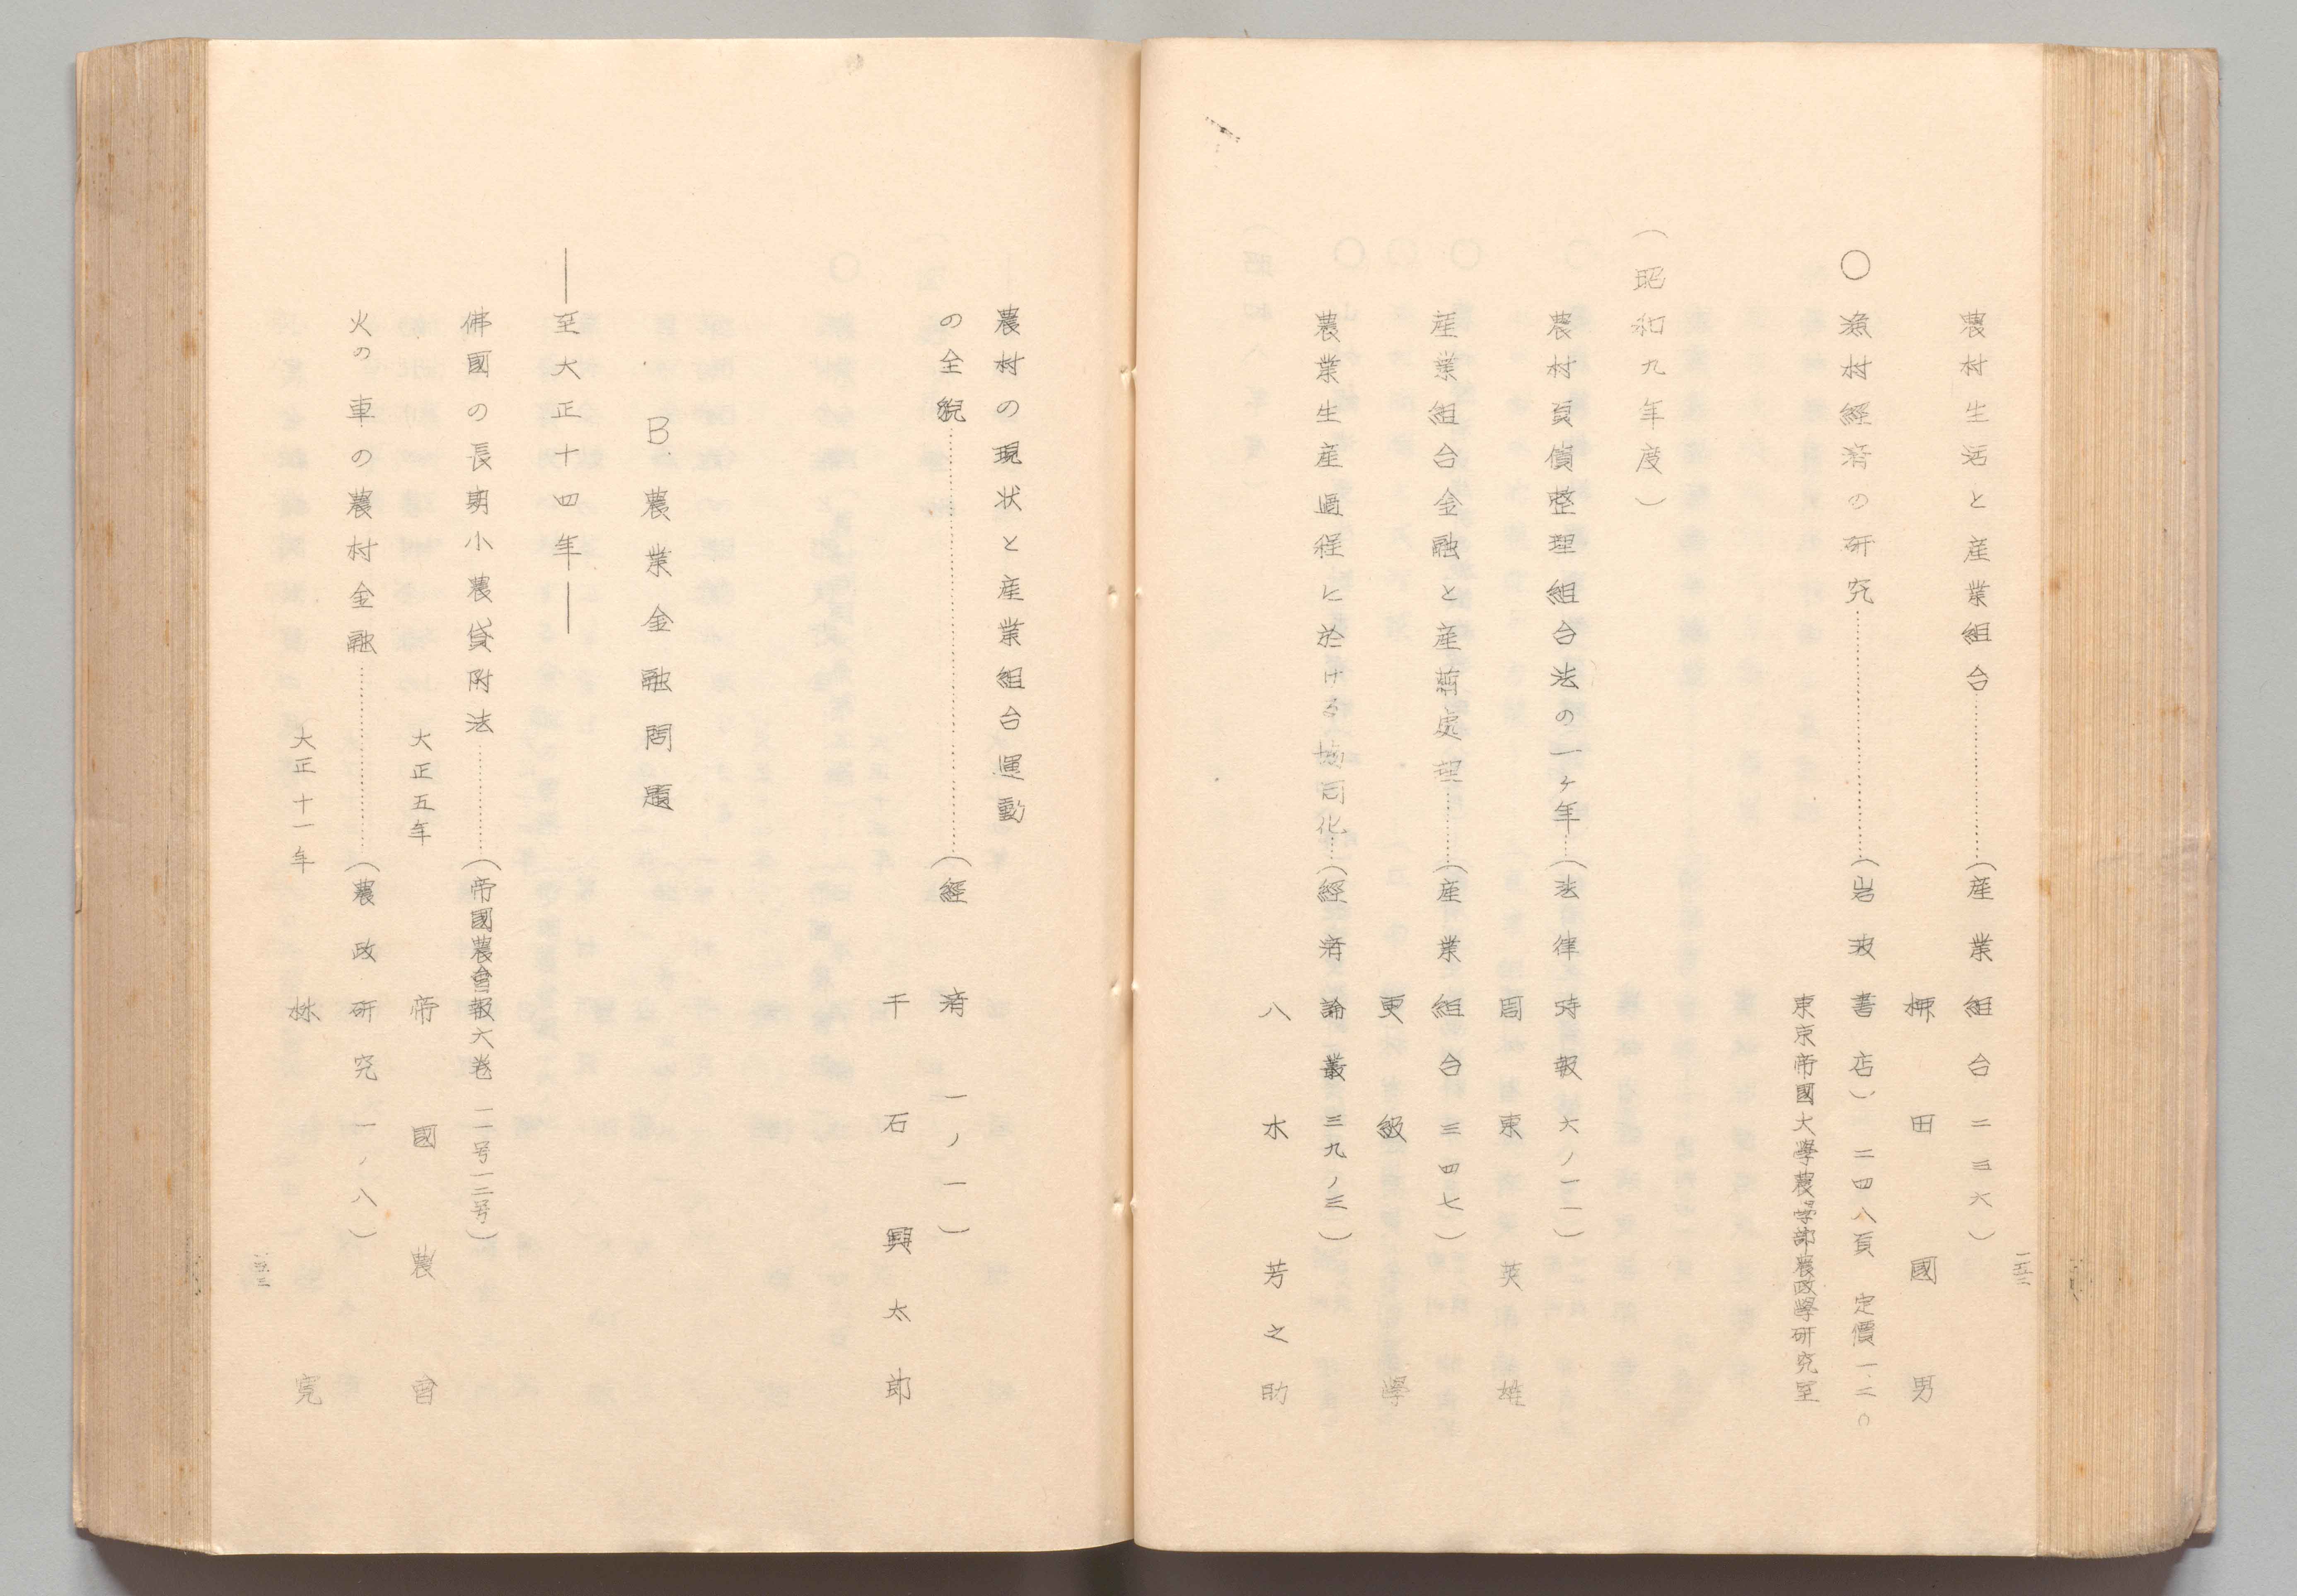 農村生活と産業組合…………(産業組合二三六)
柳田國男
○漁村経済の研究…………(岩波書店)二四八頁 定價一.二〇
東京帝國大學農學部農政學研究室
(昭和九年度)
農村負債整理組合法の一ヶ年……(法律時報六ノ一一)
周東英雄
産業組合金融と産繭處理……(産業組合三四七)
更級學
農業生産過程に於ける協同化……(經済論叢三九ノ三)
八木芳之助
一五二
農村の現状と産業組合運動
の全貌…………(經済一ノ一)
千石興太郎
B.農業金融問題
―至大正十四年―
佛國の長期小農貸附法…………(帝國農會報六卷一一号一二号)
大正五年 帝國農會
火の車の農村金融…………(農政研究一ノ八)
大正十一年 林寛
一五三